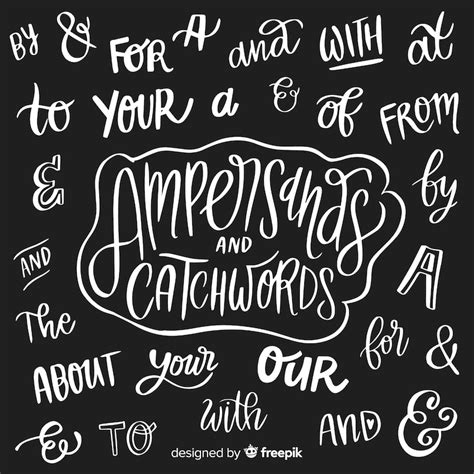 BY & FOR A and WITH at
to YOUR a & of FROM
& AMPERSANDS by
AND
AND CATCHWORDS A
The for &
ABOUT your OUR
& TO with AND &
designed by freepik